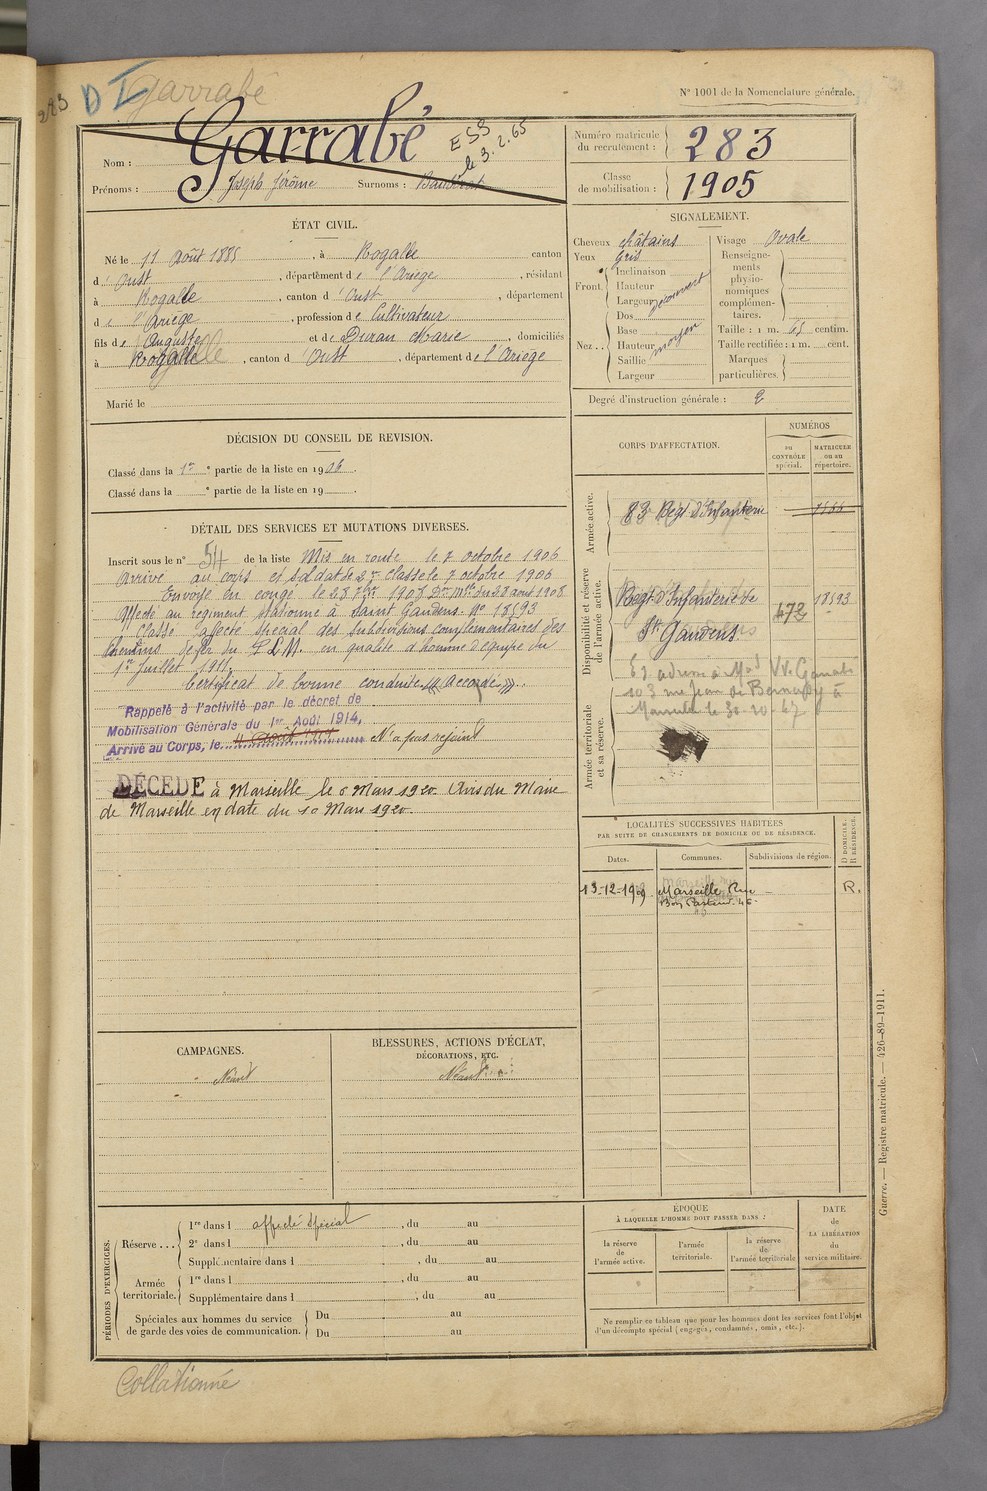 283
D I
Garrabé
N° 1001 de la Nomenclature générale.
Nom : Garrabé
ESS
le 3.2.65
Prénoms : Joseph Jérôme Surnoms :
Numéro matricule du recrutement : 283
Classe de mobilisation : 1905
ÉTAT CIVIL.
Né le 11 Août 1885, à Rogalle canton
d'Oust, département de l'Ariège, résidant
à Rogalle, canton d'Oust, département
de l'Ariège, profession de Cultivateur
fils de Auguste et de Duran Marie, domiciliés
à Rogalle, canton d'Oust, département de l'Ariège
Marié le
SIGNALEMENT.
Cheveux châtains
Yeux gris
Front. Inclinaison
Hauteur
Largeur découvert
Nez .. Dos
Base
Hauteur moyen
Saillie
Largeur
Visage Ovale
Renseignements physionomiques complémentaires.
Taille : 1 m. 65 centim.
Taille rectifiée : 1 m. cent.
Marques particulières.
Degré d'instruction générale : 2
DÉCISION DU CONSEIL DE REVISION.
Classé dans la 1re partie de la liste en 1906.
Classé dans la e partie de la liste en 19
DÉTAIL DES SERVICES ET MUTATIONS DIVERSES.
Inscrit sous le n° 54 de la liste Mis en route le 7 octobre 1906
Arrivé au corps et soldat de 2e classe le 7 octobre 1906
Envoyé en congé le 28 7bre 1908 Don Mlle du 28 août 1908
Affecté au régiment stationné à Saint Gaudens. No 18593
Classé affecté spécial des subdivisions complémentaires des
chemins de fer du P.L.M. en qualité d'homme d'équipe du
1er Juillet 1911.
Certificat de bonne conduite "accordé".
Rappelé à l'activité par le décret de
Mobilisation Générale du 1er Août 1914.
Arrivé au Corps, le 4 Août 1914 N'a pas rejoint
DÉCÉDÉ à Marseille le 6 Mars 1920. Avis du Maire
de Marseille en date du 10 Mars 1920.
CORPS D'AFFECTATION.
NUMÉROS
au CONTRÔLE spécial.
MATRICULE ou au répertoire.
Armée active.
83e Régt d'Infanterie
Disponibilité et réserve de l'armée active.
Régt d'Infanterie de
St Gaudens
472
18593
Armée territoriale et sa réserve.
103 rue Jean de Bernardy à
Marseille le 30-10-47
LOCALITÉS SUCCESSIVES HABITÉES
PAR SUITE DE CHANGEMENTS DE DOMICILE OU DE RÉSIDENCE.
Dates. Communes. Subdivisions de région. D DOMICILE. R RÉSIDENCE.
13-12-1909. Marseille Rue R.
Bon Pasteur 46
CAMPAGNES.
Néant
BLESSURES, ACTIONS D'ÉCLAT,
DÉCORATIONS, ETC.
Néant
PÉRIODES D'EXERCICES.
Réserve ... 1re dans l affecté spécial, du au
2e dans l , du au
Supplémentaire dans l , du au
Armée territoriale. 1re dans l , du au
Supplémentaire dans l , du au
Spéciales aux hommes du service
de garde des voies de communication. Du au
Du au
ÉPOQUE
À LAQUELLE L'HOMME DOIT PASSER DANS :
la réserve de l'armée active.
l'armée territoriale.
la réserve de l'armée territoriale
DATE de LA LIBÉRATION du service militaire.
Ne remplir ce tableau que pour les hommes dont les services font l'objet
d'un décompte spécial (engagés, condamnés, omis, etc.).
Guerre. — Registre matricule. — 426-89-1911.
Collationné